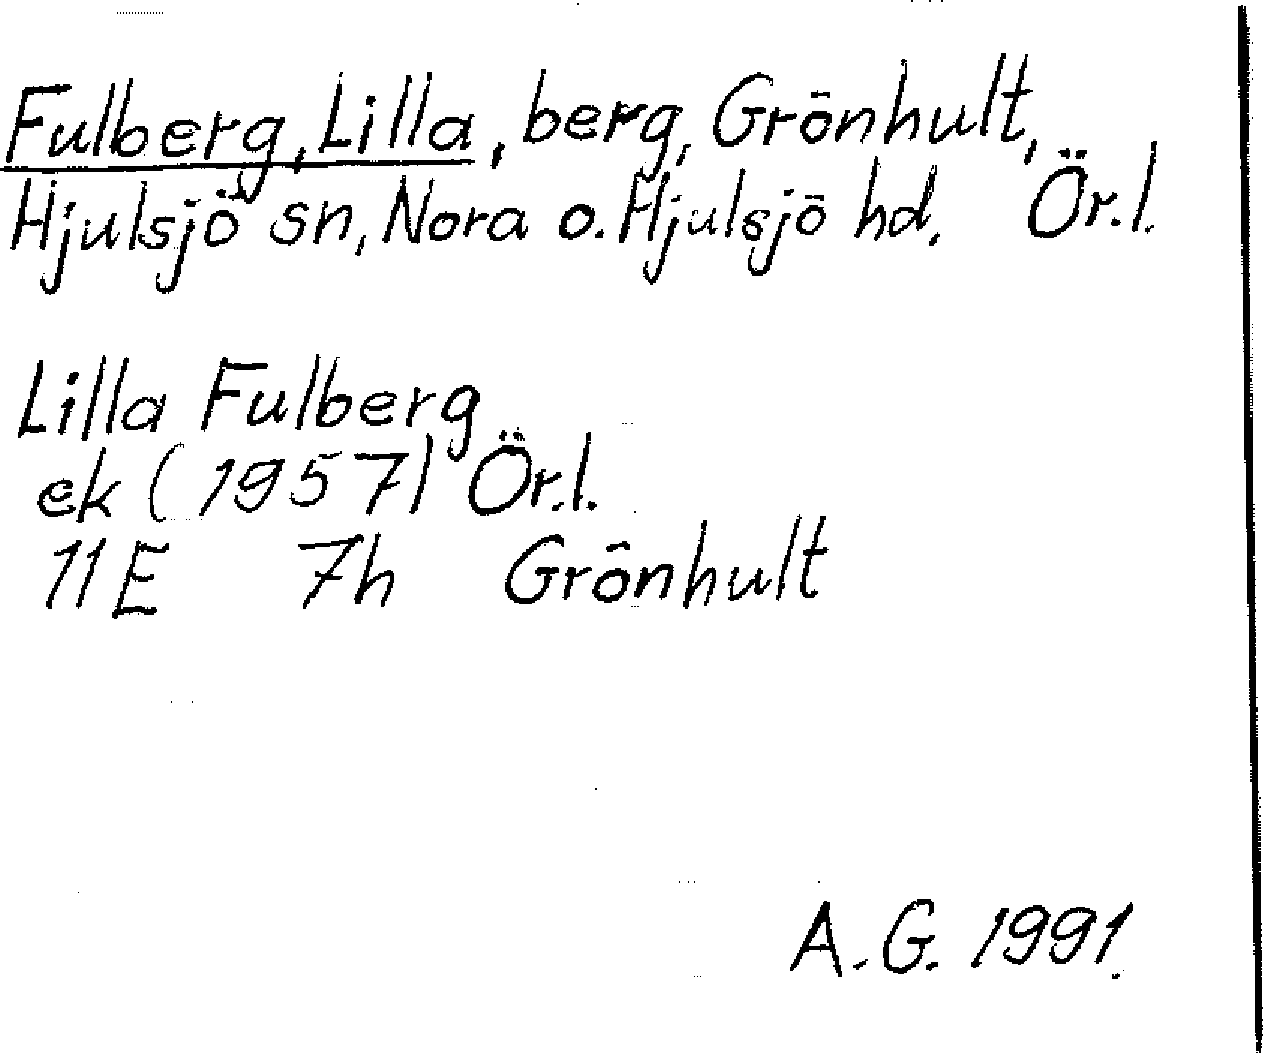 Fulberg, Lilla, berg, Grönhult,
Hjulsjö sn, Nora o. Hjulsjö hd, Ör.l.
Lilla Fulberg
ek (1957) Ör.l.
11E 7h Grönhult
A.G. 1991.